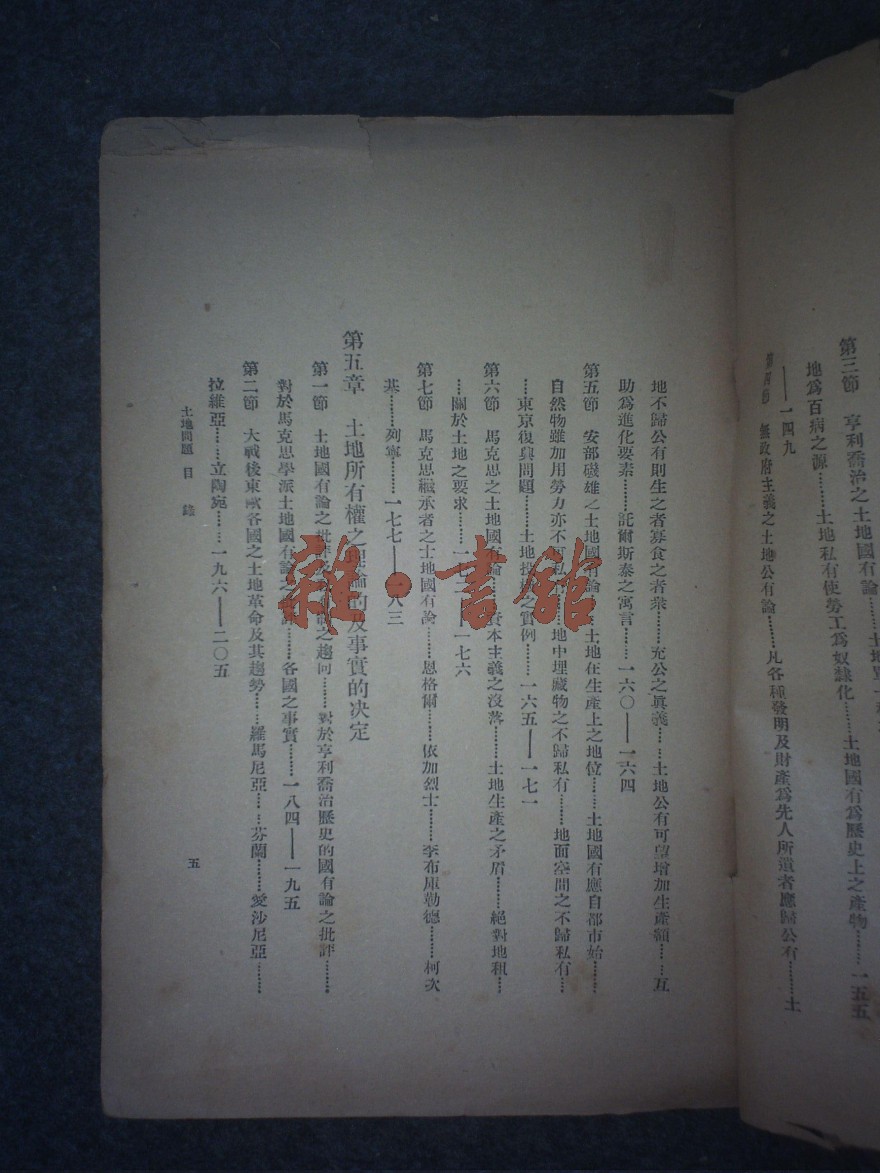 第三節　亨利喬治之土地國有論……土地單一
地爲百病之源……土地私有使勞工爲奴隸化……土地國有爲歷史上之產物……一五五
——一四九
第四節　無政府主義之土地公有論……凡各種發明及財產爲先人所遺者應歸公有……土
地不歸公有則生之者寡食之者衆……充公之眞義……土地公有可望增加生產額……互
助爲進化要素……託爾斯泰之寓言……一六〇——一六四
第五節　安部磯雄之土地國有論……土地在生產上之地位……土地國有應自都市始……
自然物雖加用勞力亦不可私有……地中埋藏物之不歸私有……地面空間之不歸私有…
…東京復興問題……土地投機之實例……一六五——一七一
第六節　馬克思之土地國有論……資本主義之沒落……土地生產之矛盾……絕對地租…
…關於土地之要求……一七二——一七六
第七節　馬克思繼承者之土地國有論……恩格爾……依加烈士……李布庫勒德……柯次
基……列寧……一七七——一八三
第五章　土地所有權之理論的及事實的決定
第一節　土地國有論之批評及之趨向……對於亨利喬治歷史的國有論之批評……
對於馬克思學派土地國有論之批評……各國之事實……一八四——一九五
第二節　大戰後東歐各國之土地革命及其趨勢……羅馬尼亞……芬蘭……愛沙尼亞……
拉維亞……立陶宛……一九六——二〇五
土地問題　目錄
五
雜·書館